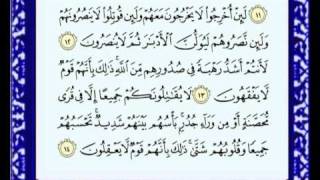 ١١ لَئِنْ أُخْرِجُوا۟ لَا يَخْرُجُونَ مَعَهُمْ وَلَئِن قُوتِلُوا۟ لَا يَنصُرُونَهُمْ
وَلَئِن نَّصَرُوهُمْ لَيُوَلُّنَّ ٱلْأَدْبَٰرَ ثُمَّ لَا يُنصَرُونَ ١٢
لَأَنتُمْ أَشَدُّ رَهْبَةً فِى صُدُورِهِم مِّنَ ٱللَّهِ ذَٰلِكَ بِأَنَّهُمْ قَوْمٌ
لَّا يَفْقَهُونَ ١٣ لَا يُقَٰتِلُونَكُمْ جَمِيعًا إِلَّا فِى قُرًى
مُّحَصَّنَةٍ أَوْ مِن وَرَآءِ جُدُرٍۭ بَأْسُهُم بَيْنَهُمْ شَدِيدٌ تَحْسَبُهُمْ
جَمِيعًا وَقُلُوبُهُمْ شَتَّىٰ ذَٰلِكَ بِأَنَّهُمْ قَوْمٌ لَّا يَعْقِلُونَ ١٤